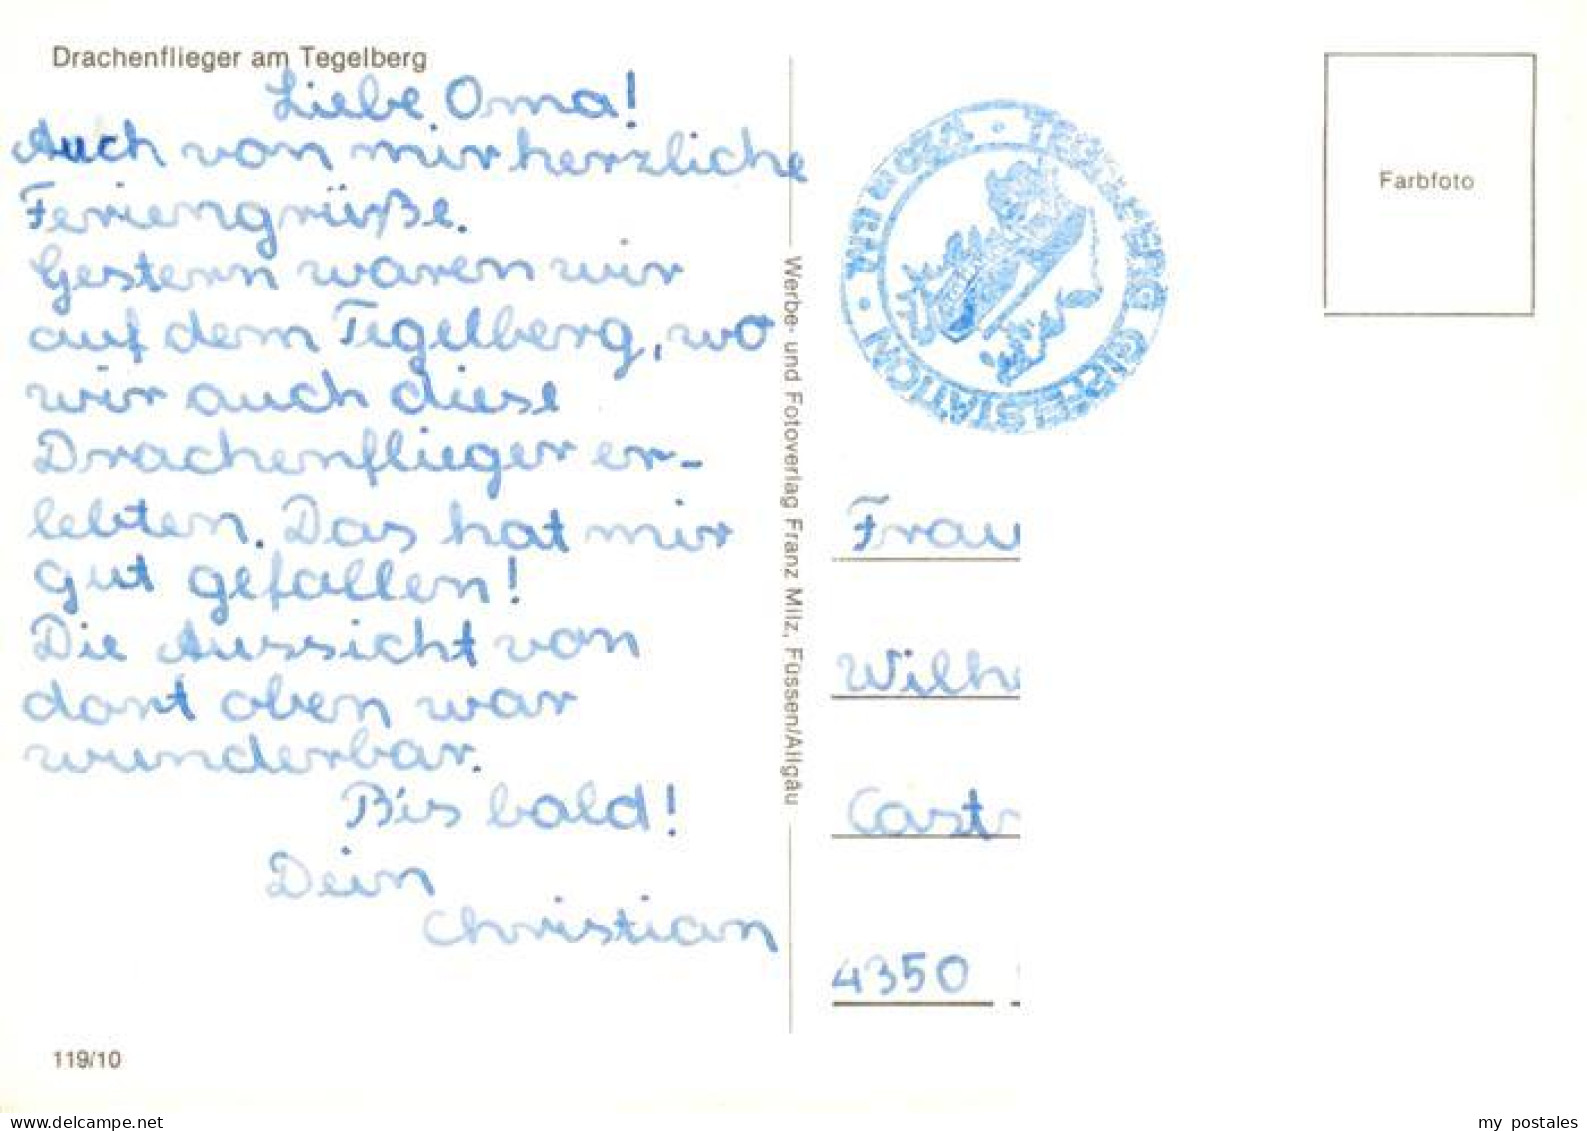 Drachenflieger am Tegelberg
Liebe Oma!
Auch von mir herzliche
Feriengrüße.
Gestern waren wir
auf dem Tegelberg, wo
wir auch diese
Drachenflieger er-
lebten. Das hat mir
gut gefallen!
Die Aussicht von
dort oben war
wunderbar.
Bis bald!
Dein
Christian
119/10
Werbe- und Fotoverlag Franz Milz, Füssen/Allgäu
TEGELBERG GIPFELSTATION
Farbfoto
Frau
Wilhe
Castr
4350
delcampe.net
my_postales